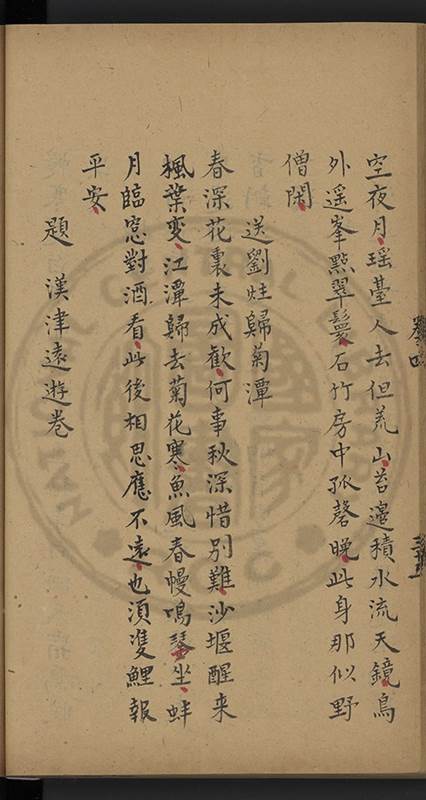 空夜月瑶臺人去但荒山苔邊積水流天鏡鳥
外遥峯點翠鬟石竹房中孤磬晚此身那似野
僧閑
送劉炷歸菊潭
春深花裏未成歡何事秋深惜别難沙堰醒来
楓葉变江潭歸去菊花寒魚風春幔鳴琴坐蚌
月臨窓對酒看此後相思應不遠也須隻鯉報
平安
題漢津遠遊卷